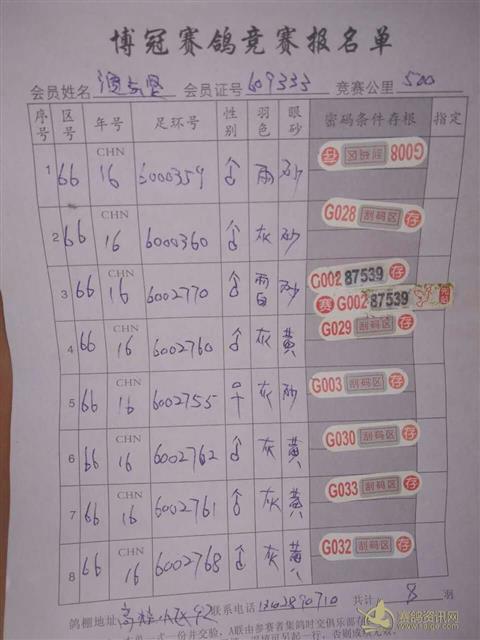 博冠赛鸽竞赛报名单
会员姓名 会员证号 609333 竞赛公里 500
序号 区号 年号 足环号 性别 羽色 眼砂 密码条件存根 指定
1 66 CHN 16 6000359 雨 砂 G008 刮码区 存
2 66 CHN 16 6000360 灰 砂 G028 刮码区 存
3 66 CHN 16 6002770 砂 G002 87539 存
赛 G002 87539
4 66 CHN 16 6002760 灰 黄 G029 刮码区 存
5 66 CHN 16 6002755 灰 砂 G003 刮码区 存
6 66 CHN 16 6002762 灰 黄 G030 刮码区 存
7 66 CHN 16 6002761 灰 黄 G033 刮码区 存
8 66 CHN 16 6002768 灰 黄 G032 刮码区 存
鸽棚地址: 联系电话 共计 8 羽
赛鸽资讯网